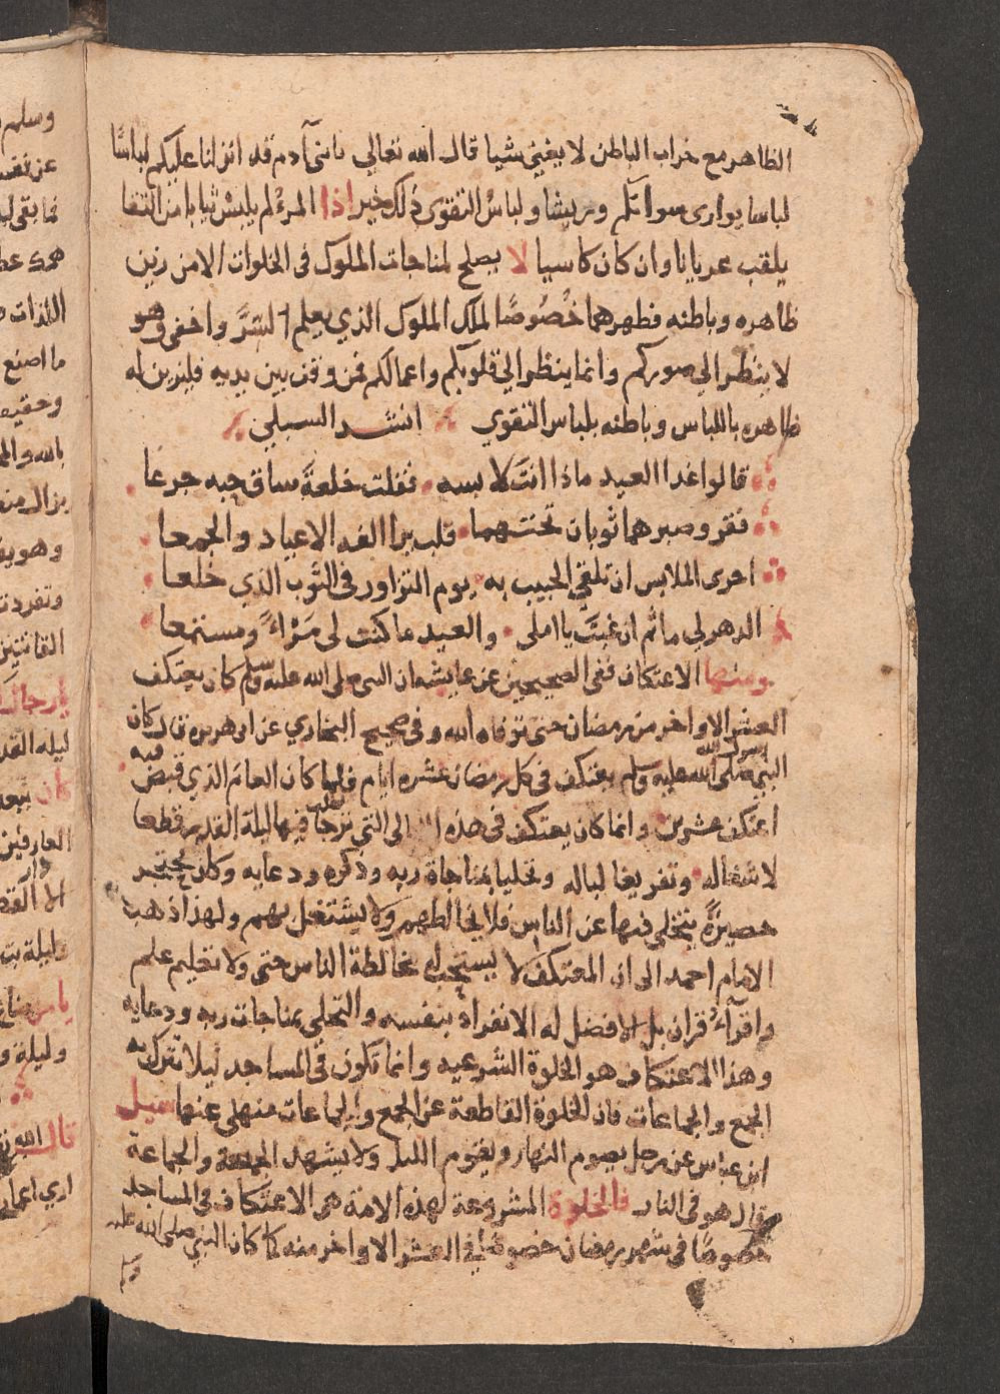 الظاهر مع خراب الباطن لا يغني شيا قال الله تعالي يا بني آدم قد انزلنا عليكم لباسًا
لباسا يوارى سواتكم وريشا ولباسُ التقوى ذلك خير اذا المرءُ لم يلبس ثيابا من التقا
يلقب عريانا وان كان كاسيا لا يصلح لمناجات الملوك في الخلوات الا من زين
ظاهره وباطنه وطهرهما خُصُوصًا لملك الملوك الذي يعلم السِّرَّ واخفى وهو
لا ينظر الى صوركم وانما ينظر الي قلوبكم واعمالكم فمن وقف بين يديه فليزين له
ظاهره باللباس وباطنه بلباس التقوي انشد السبلي
قالوا غدا العيد ماذا انتَ لابسه فقلت خلعةً ساق حبه جرعا
فقر وصبر هما ثوبان تحتهما قلب يرا الفه الاعياد والجمعا
احرى الملابس ان تلقي الحبيب به يوم التزاور في الثوب الذي خلعا
الدهر لي ماتم ان غبتَ يا املى والعيد ما كنت لى مَرْاءً ومستمعا
ومنها الاعتكاف ففى الصحيحين عن عايشه ان النبى صلى الله عليه وسلم كان يعتكف
العشر الاواخر من رمضان حتى توفاه الله وفي صحيح البخاري عن ابى هريره قال كان
النبي صلى الله عليه وسلم يعتكف في كل رمضان عشره ايام فلما كان العام الذي قبض فيه
اعتكف عشرين وانما كان يعتكف في هذه الى التي يرجا فيها ليلة القدر قطعا
لاشغاله وتفريغا لباله وتخليا بمناجاة ربه وذكره ودعايه وكان يحتجر
حصيرةً يتخلى فيها عن الناس فلا يخالطهم ولا يشتغل بهم ولهذا ذهب
الامام احمد الى ان المعتكف لا يستحب له مخالطة الناس حتى ولا تعليم علم
واقرآءُ قران بل الافضل له الانفراد بنفسه والتخلي بمناجات ربه ودعايه
وهذا الاعتكاف هو الخلوة الشرعيه وانما تكون في المساجد ليلا تترك به
الجمع والجماعات فان الخلوة القاطعة عن الجمع والجماعات منهي عنها سيل
ابن عباس عن رجل يصوم النهار ويقوم الليل ولا يشهد الجمعة والجماعة
قال هو في النار فالخلوة المشروعة لهذه الامة هى الاعتكاف في المساجد
خصوصًا في شهر رمضان خصوصًا في العشر الاواخر منه كما كان النبي صلى الله عليه
وسلم